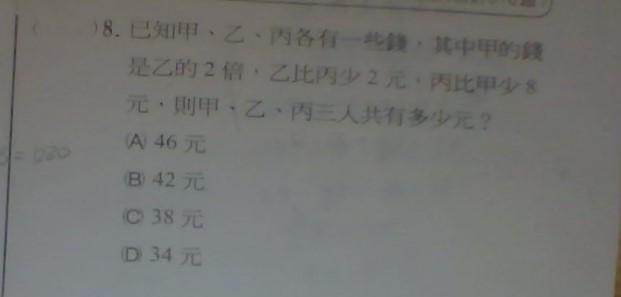 ( )8. 已知甲、乙、丙各有一些錢，其中甲的錢
是乙的 2 倍，乙比丙少 2 元，丙比甲少 8
元，則甲、乙、丙三人共有多少元？
(A) 46 元
(B) 42 元
(C) 38 元
(D) 34 元